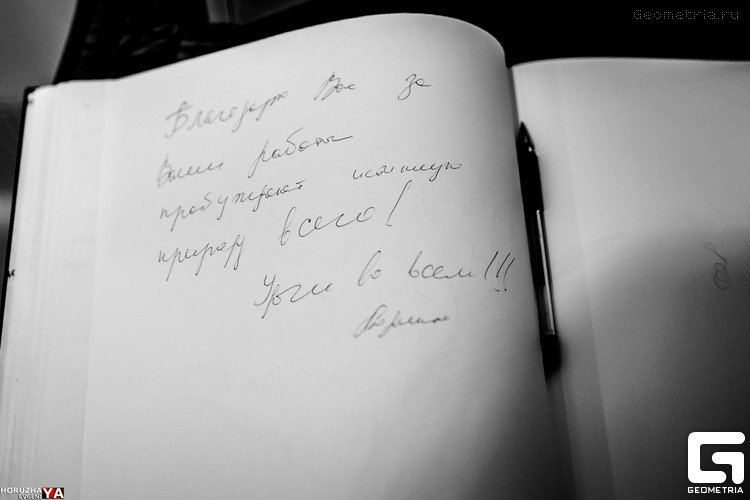 Geometria.ru
Благодарю Вас за
Ваши работы
пробуждают истинную
природу всего!
Удачи во всем!!!
HORUZHA YA
EVGENI
GEOMETRIA